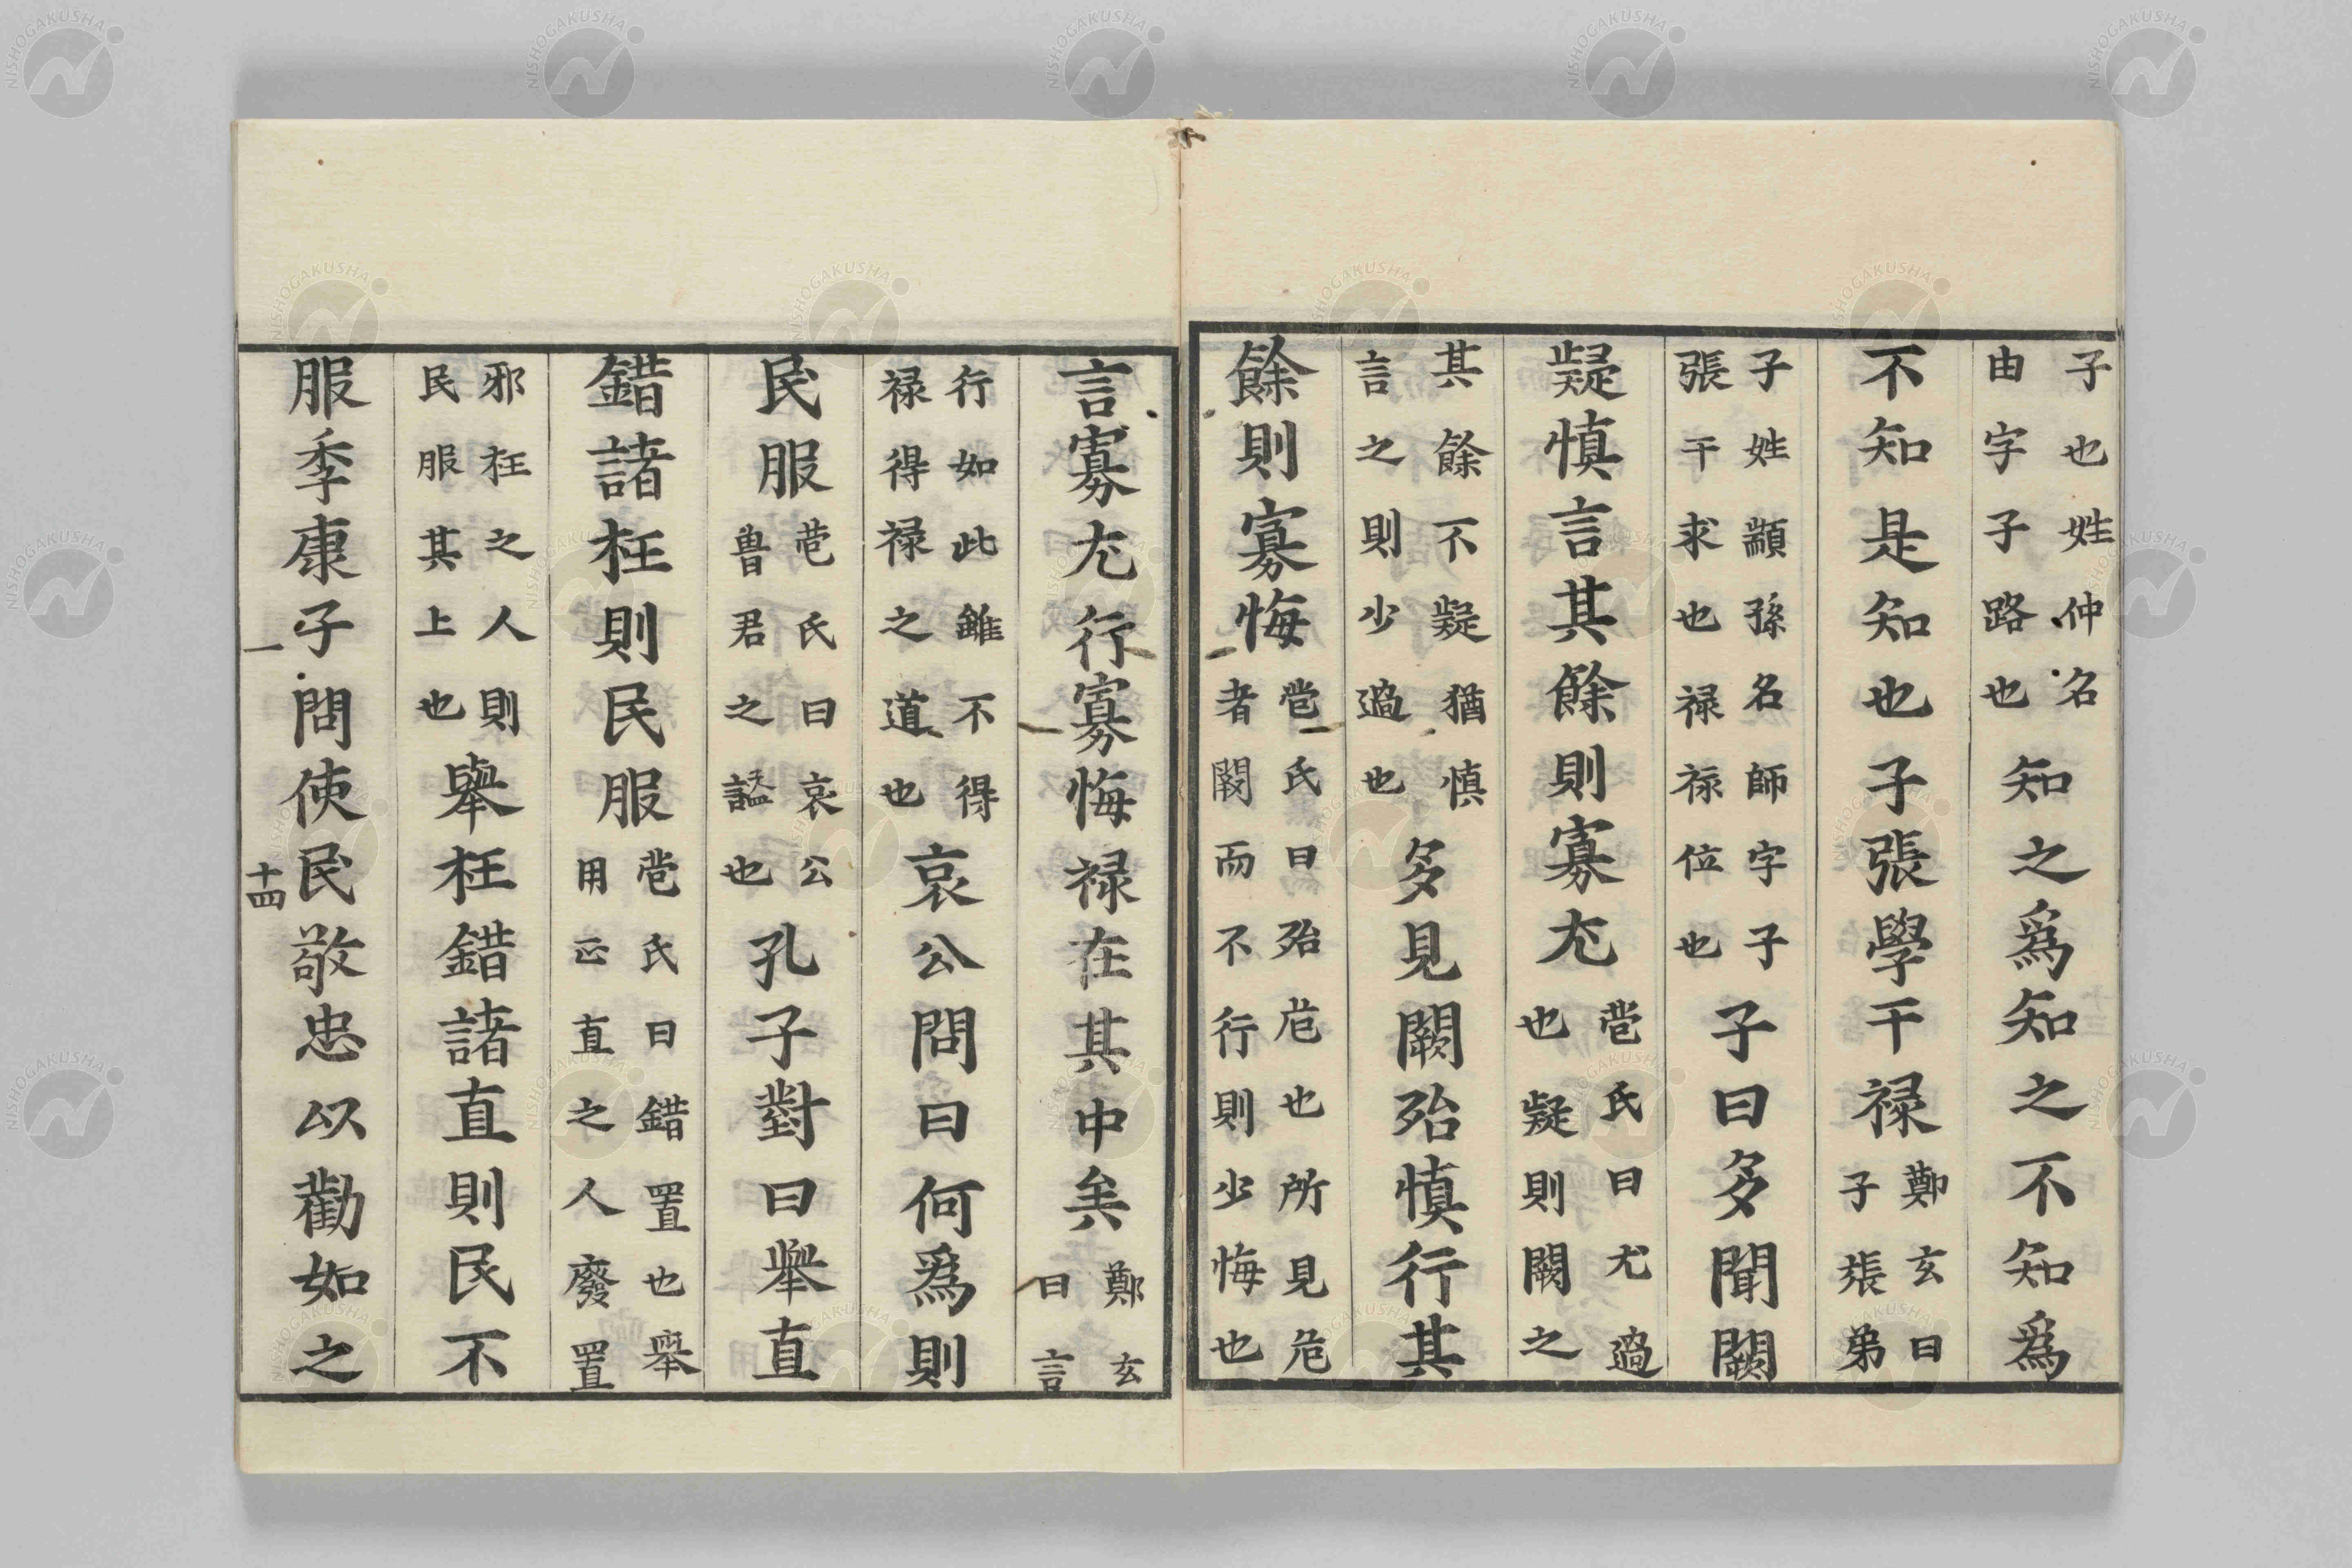 子也姓仲名由字子路也知之爲知之不知爲
不知是知也子張學干禄鄭玄曰子張弟
子姓顓孫名師字子張干求也禄祿位也子曰多聞闕
疑慎言其餘則寡尤苞氏曰尤過也疑則闕之
其餘不疑猶慎言之則少過也多見闕殆慎行其
餘則寡悔苞氏曰殆危也所見危者闕而不行則少悔也
言寡尤行寡悔禄在其中矣鄭玄曰言
行如此雖不得禄得禄之道也哀公問曰何爲則
民服苞氏曰哀公魯君之謚也孔子對曰舉直
錯諸枉則民服苞氏曰錯置也舉用正直之人廢置
邪枉之人則民服其上也舉枉錯諸直則民不
服季康子問使民敬忠以勸如之
一 十四
NISHOGAKUSHA